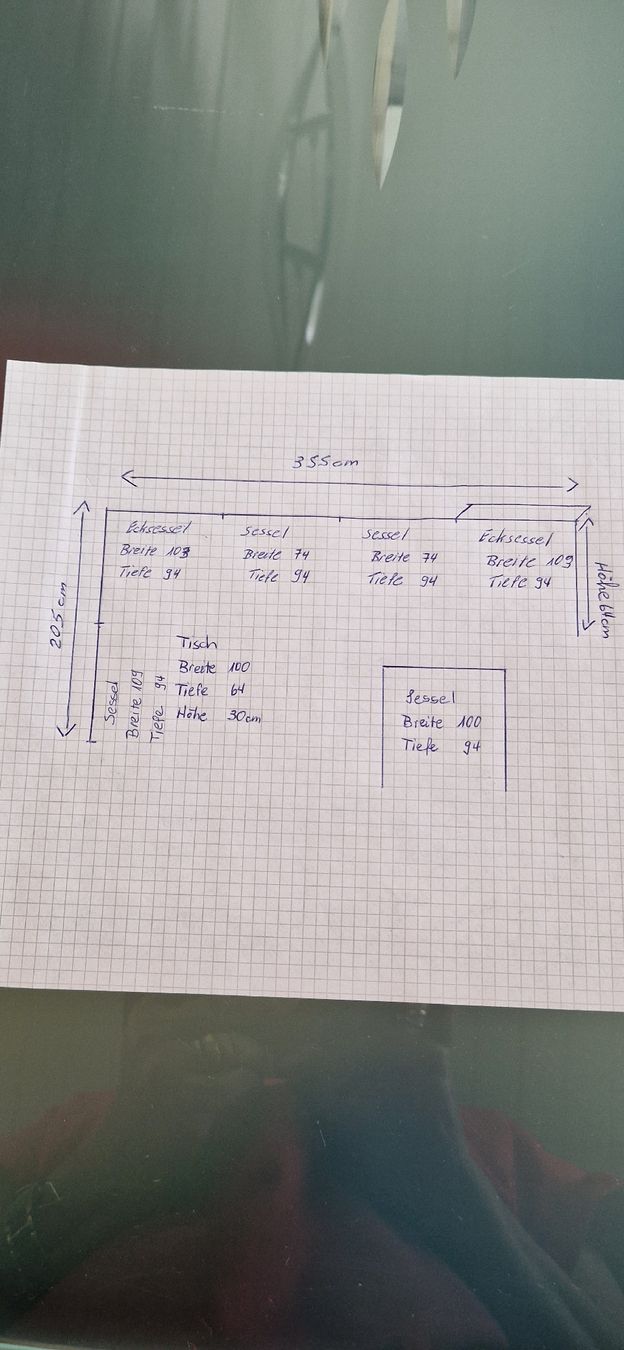 355cm
205cm
Ecksessel
Breite 103
Tiefe 94
Sessel
Breite 74
Tiefe 94
Sessel
Breite 74
Tiefe 94
Ecksessel
Breite 103
Tiefe 94
Höhe 64cm
Sessel
Breite 109
Tiefe 94
Tisch
Breite 100
Tiefe 64
Höhe 30cm
Sessel
Breite 100
Tiefe 94